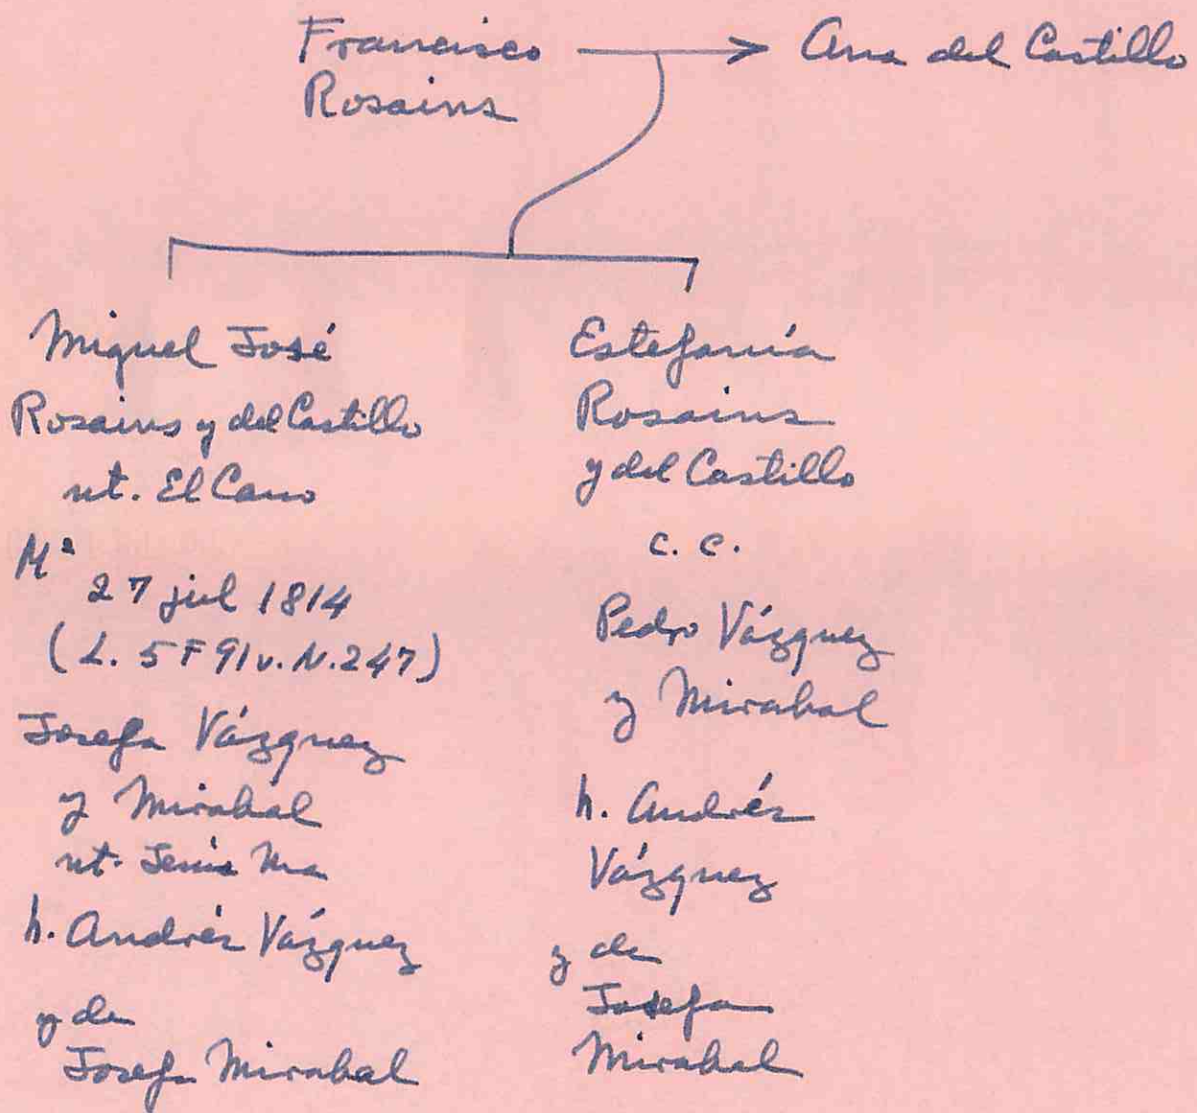 Francisco
Rosains
Ana del Castillo
Miguel José
Rosains y del Castillo
nt. El Cano
Mª
27 jul 1814
(L. 5 F 91v. N. 247)
Josefa Vázquez
y Mirabal
nt. Jesús Ma
h. Andrés Vázquez
y de
Josefa Mirabal
Estefanía
Rosains
y del Castillo
c. c.
Pedro Vázquez
y Mirabal
h. Andrés
Vázquez
y de
Josefa
Mirabal